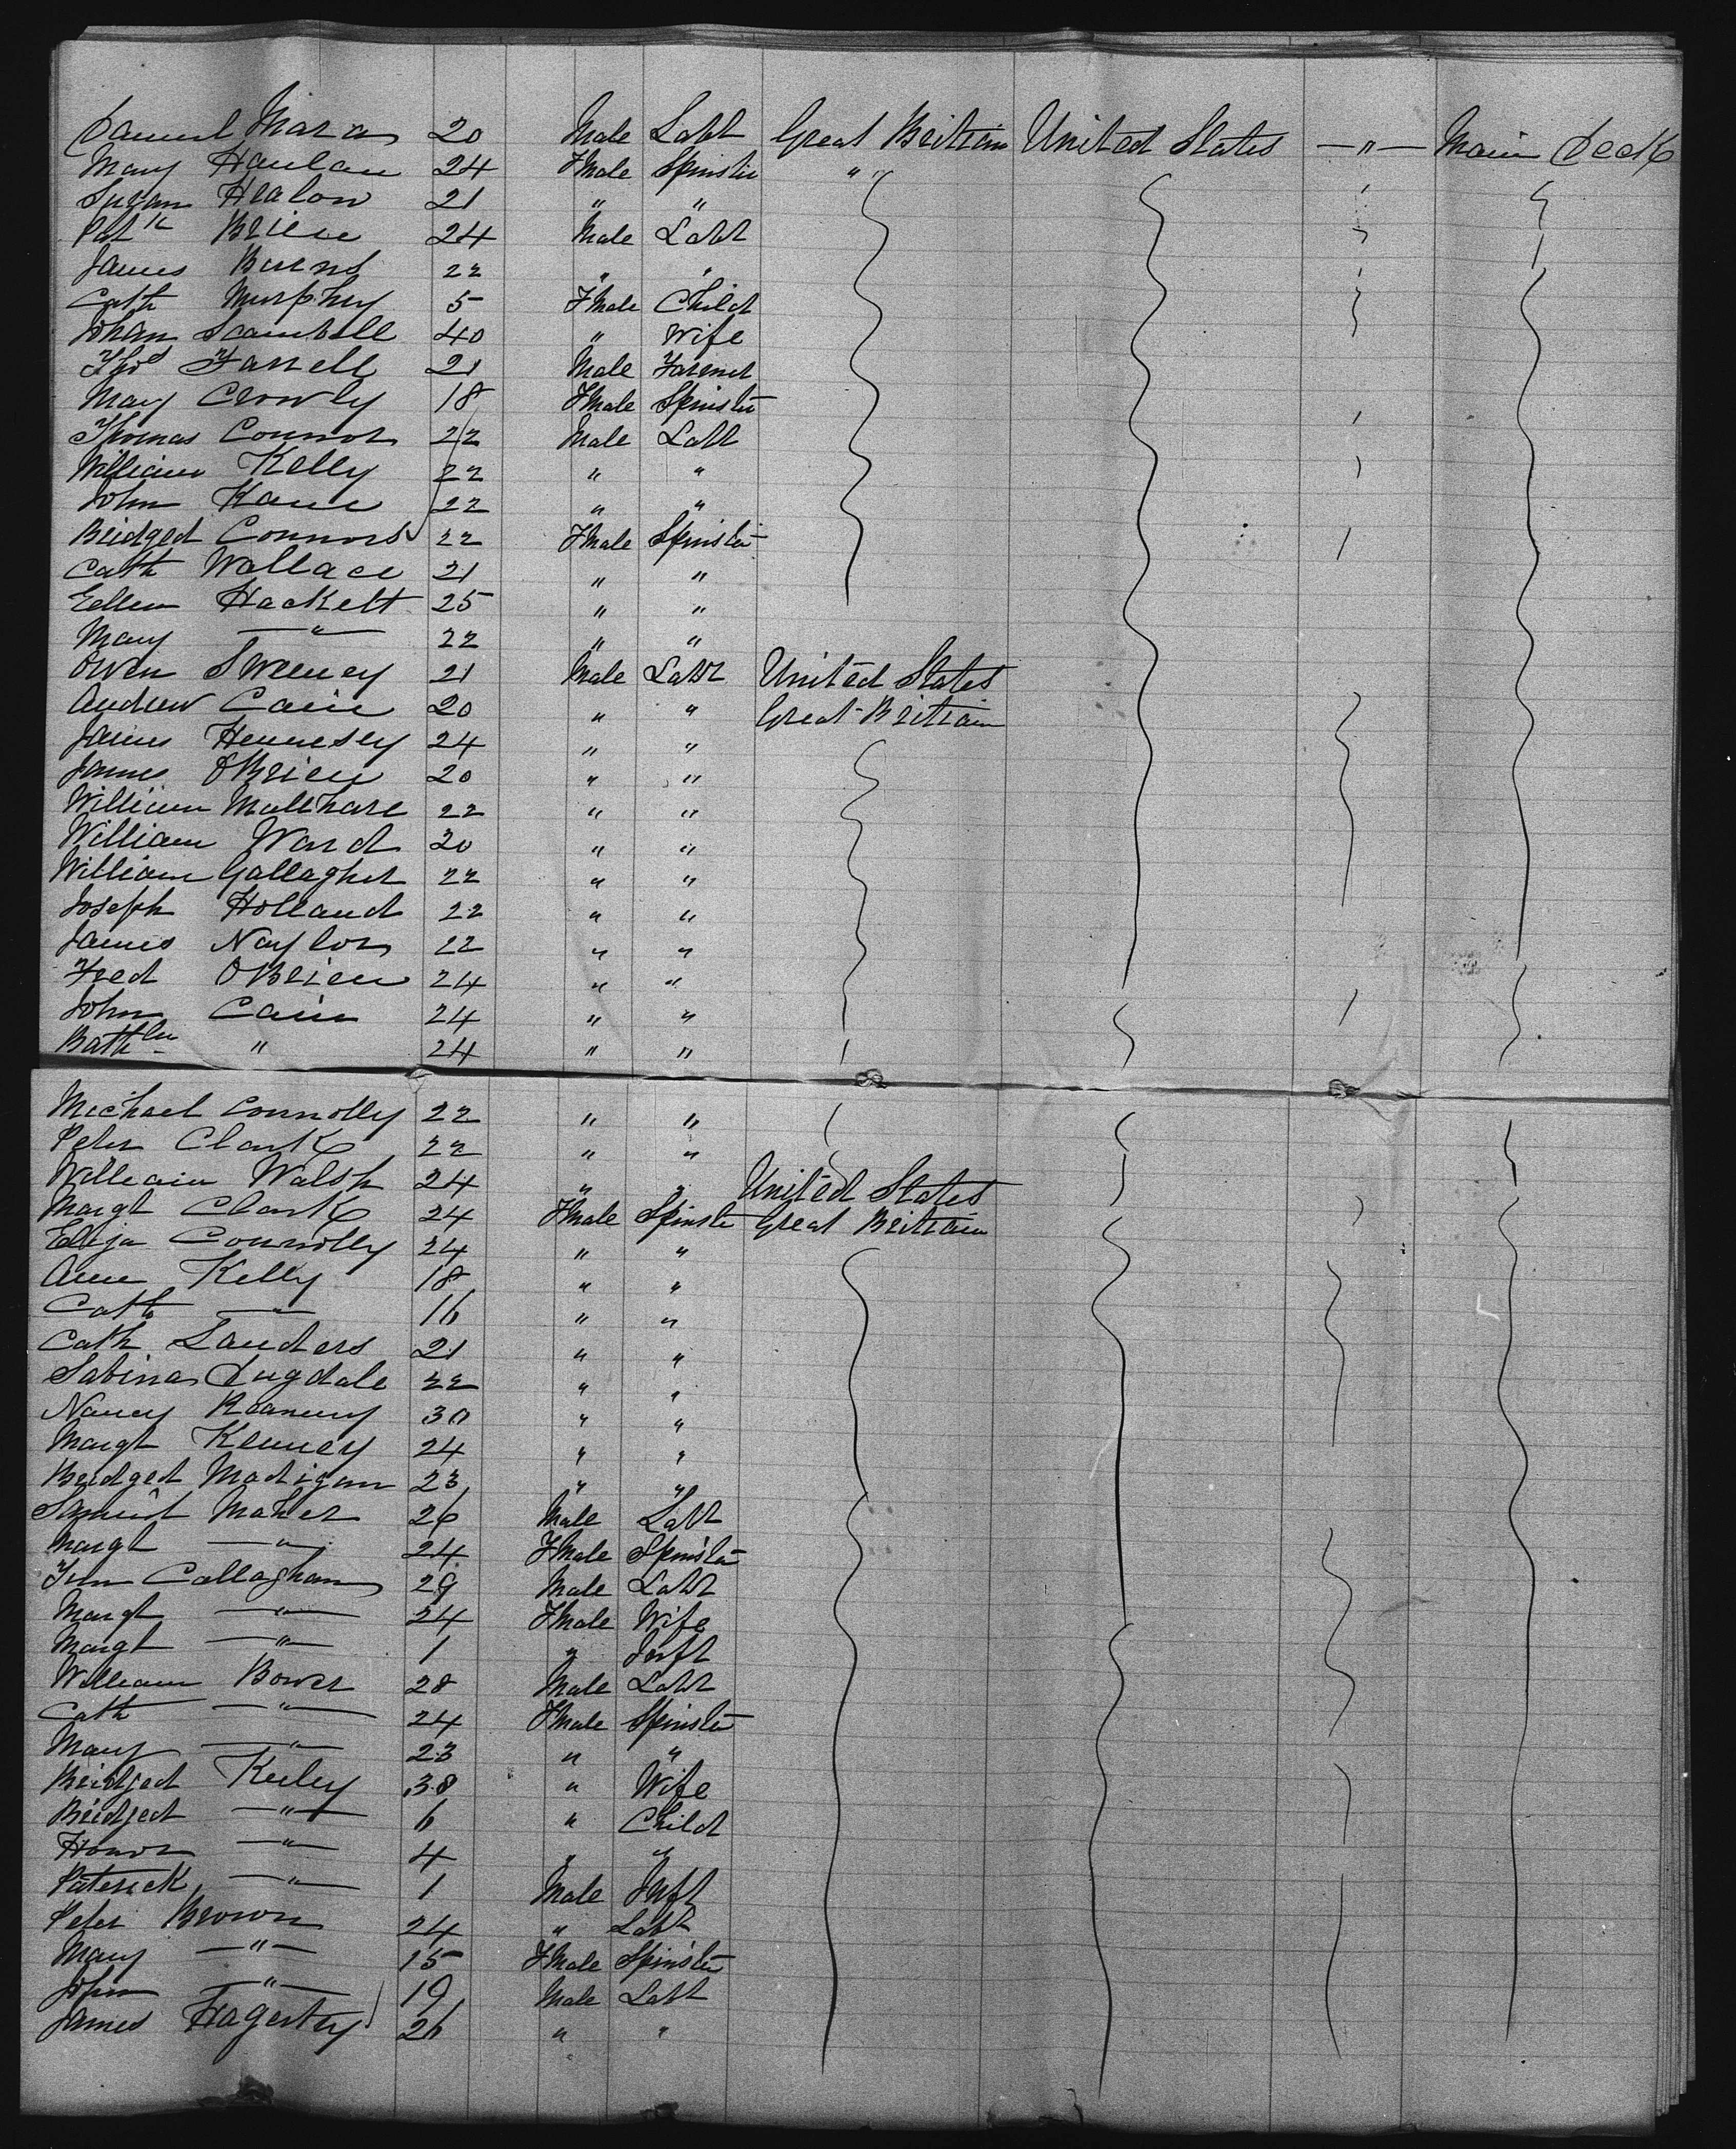 Daniel Mara 20 Male Labr Great Britian United States —"— Main Deck
Mary Hanlan 24 Fmale Spinster " "
Susan Healon 21 " "
Patk Briene 24 Male Labr
James Burns 22 " "
Cath Murphy 5 Fmale Child
Johan Scambell 40 " Wife
Thos Farrell 21 Male Farmer
Mary Crowly 18 Fmale Spinster
Thomas Connor 22 Male Labr
William Kelly 22 " "
John Kane 22 " "
Bridged Connors 22 Fmale Spinster
Cath Wallace 21 " "
Ellen Hackett 25 " "
Mary —"— 22 " "
Owen Sweeney 21 Male Labr United States
Andrew Cain 20 " " Great Britian
James Hennesey 24 " "
James OBrien 20 " "
William Mullhare 22 " "
William Ward 20 " "
William Gallagher 22 " "
Joseph Holland 22 " "
James Naylor 22 " "
Fred OBrien 24 " "
John Cain 24 " "
Bathlm " 24 " "
Michael Connolly 22 " "
Peter Clark 22 " "
William Walsh 24 " " United States
Margt Clark 24 Fmale Spinster Great Britian
Eliza Connolly 24 " "
Ann Kelly 18 " "
Cath —"— 16 " "
Cath Landers 21 " "
Sabina Dugdale 22 " "
Nancy 30 " "
Margt Kenney 24 " "
Bridged Madigan 23 " "
Maher 26 Male Labr
Margt —"— 24 Fmale Spinster
Callaghan 29 Male Labr
Margt —"— 24 Fmale Wife
Margt —"— 1 " Inft
William Bower 28 Male Labr
Cath —"— 24 Fmale Spinster
Mary —"— 23 " "
Bridjed Keiley 38 " Wife
Bridjed —"— 6 " Child
Honor —"— 4 " "
Paterick —"— 1 Male Inft
Peter Brown 24 " Labr
Mary —"— 15 Fmale Spinster
John —"— 19 Male Labr
James Hagerty 26 " "